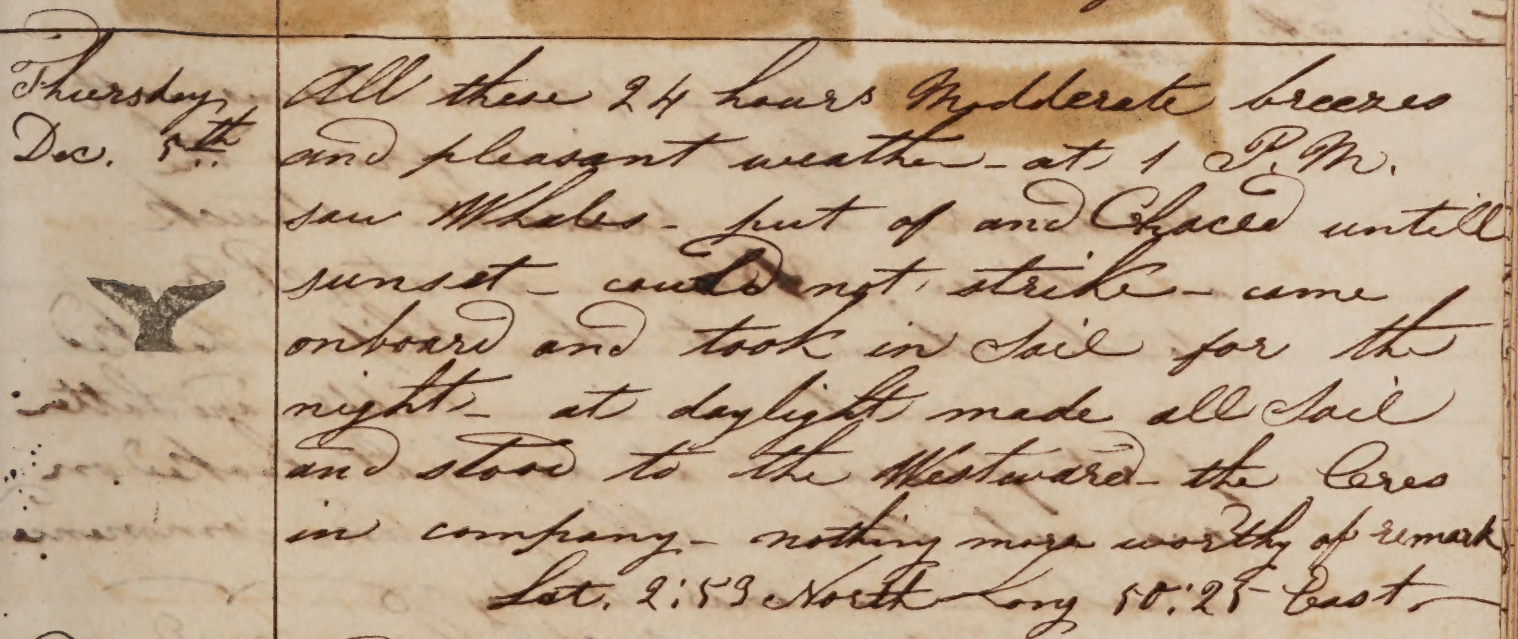 Thursday
Dec. 5th
All these 24 hours Modderate breezes
and pleasant weather - at 1 P.M.
saw Whales - put of and Chaced untill
sunset - could not strike - came
onboard and took in Sail for the
night - at daylight made all Sail
and stood to the Westward - the Ceres
in company - nothing more worthy of remark
Lat. 2:53 North Long 50:25 East